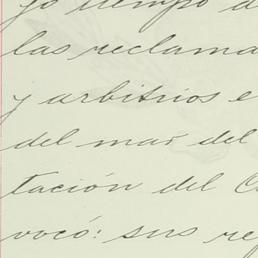 go tiempo d
las reclama
y arbitrios e
del mar del
tación del C
vocó: sus re